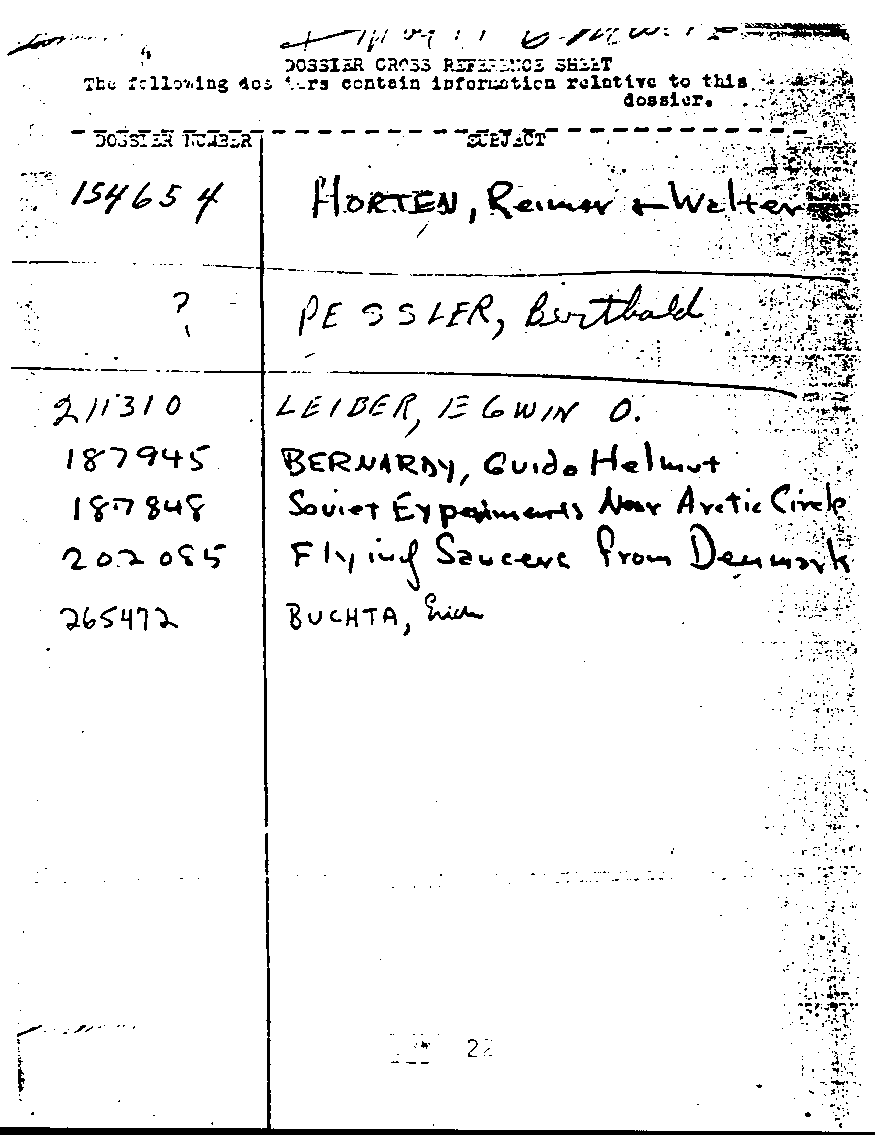 DOSSIER CROSS REFERENCE SHEET
The following dossiers contain information relative to this
dossier.
DOSSIER NUMBER SUBJECT
154654 HORTEN, Reimar + Walter
? PESSLER, Berthold
211310 LEIBER, EGWIN O.
187945 BERNARDY, Guido Helmut
187848 Soviet Experiments Near Arctic Circle
202085 Flying Saucers From Denmark
265472 BUCHTA, Erich
22